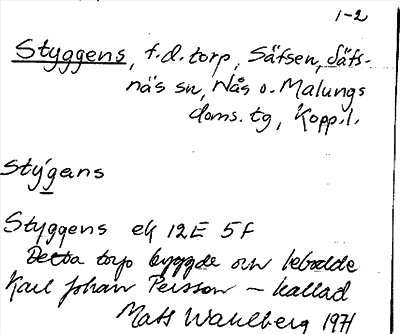 1-2
Styggens, f.d. torp, Säfsen, Säfs-
näs sn, Nås o. Malungs
doms. tg, Kopp.l.
Stýgens
Styggens ek 12E 5f
Detta torp byggde och bebodde
Karl Johan Persson – kallad
Mats Wahlberg 1971